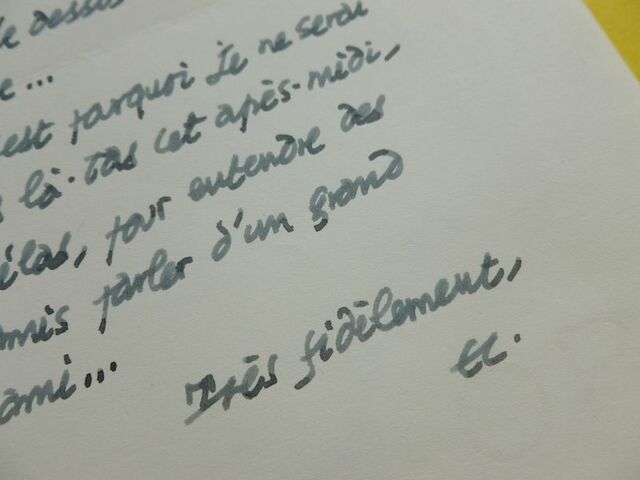 le dessus
e...
est parquoi je ne serai
s là-tas cet après-midi,
élas, pour entendre des
mis parler d'un grand
ami...
Très fidèlement,